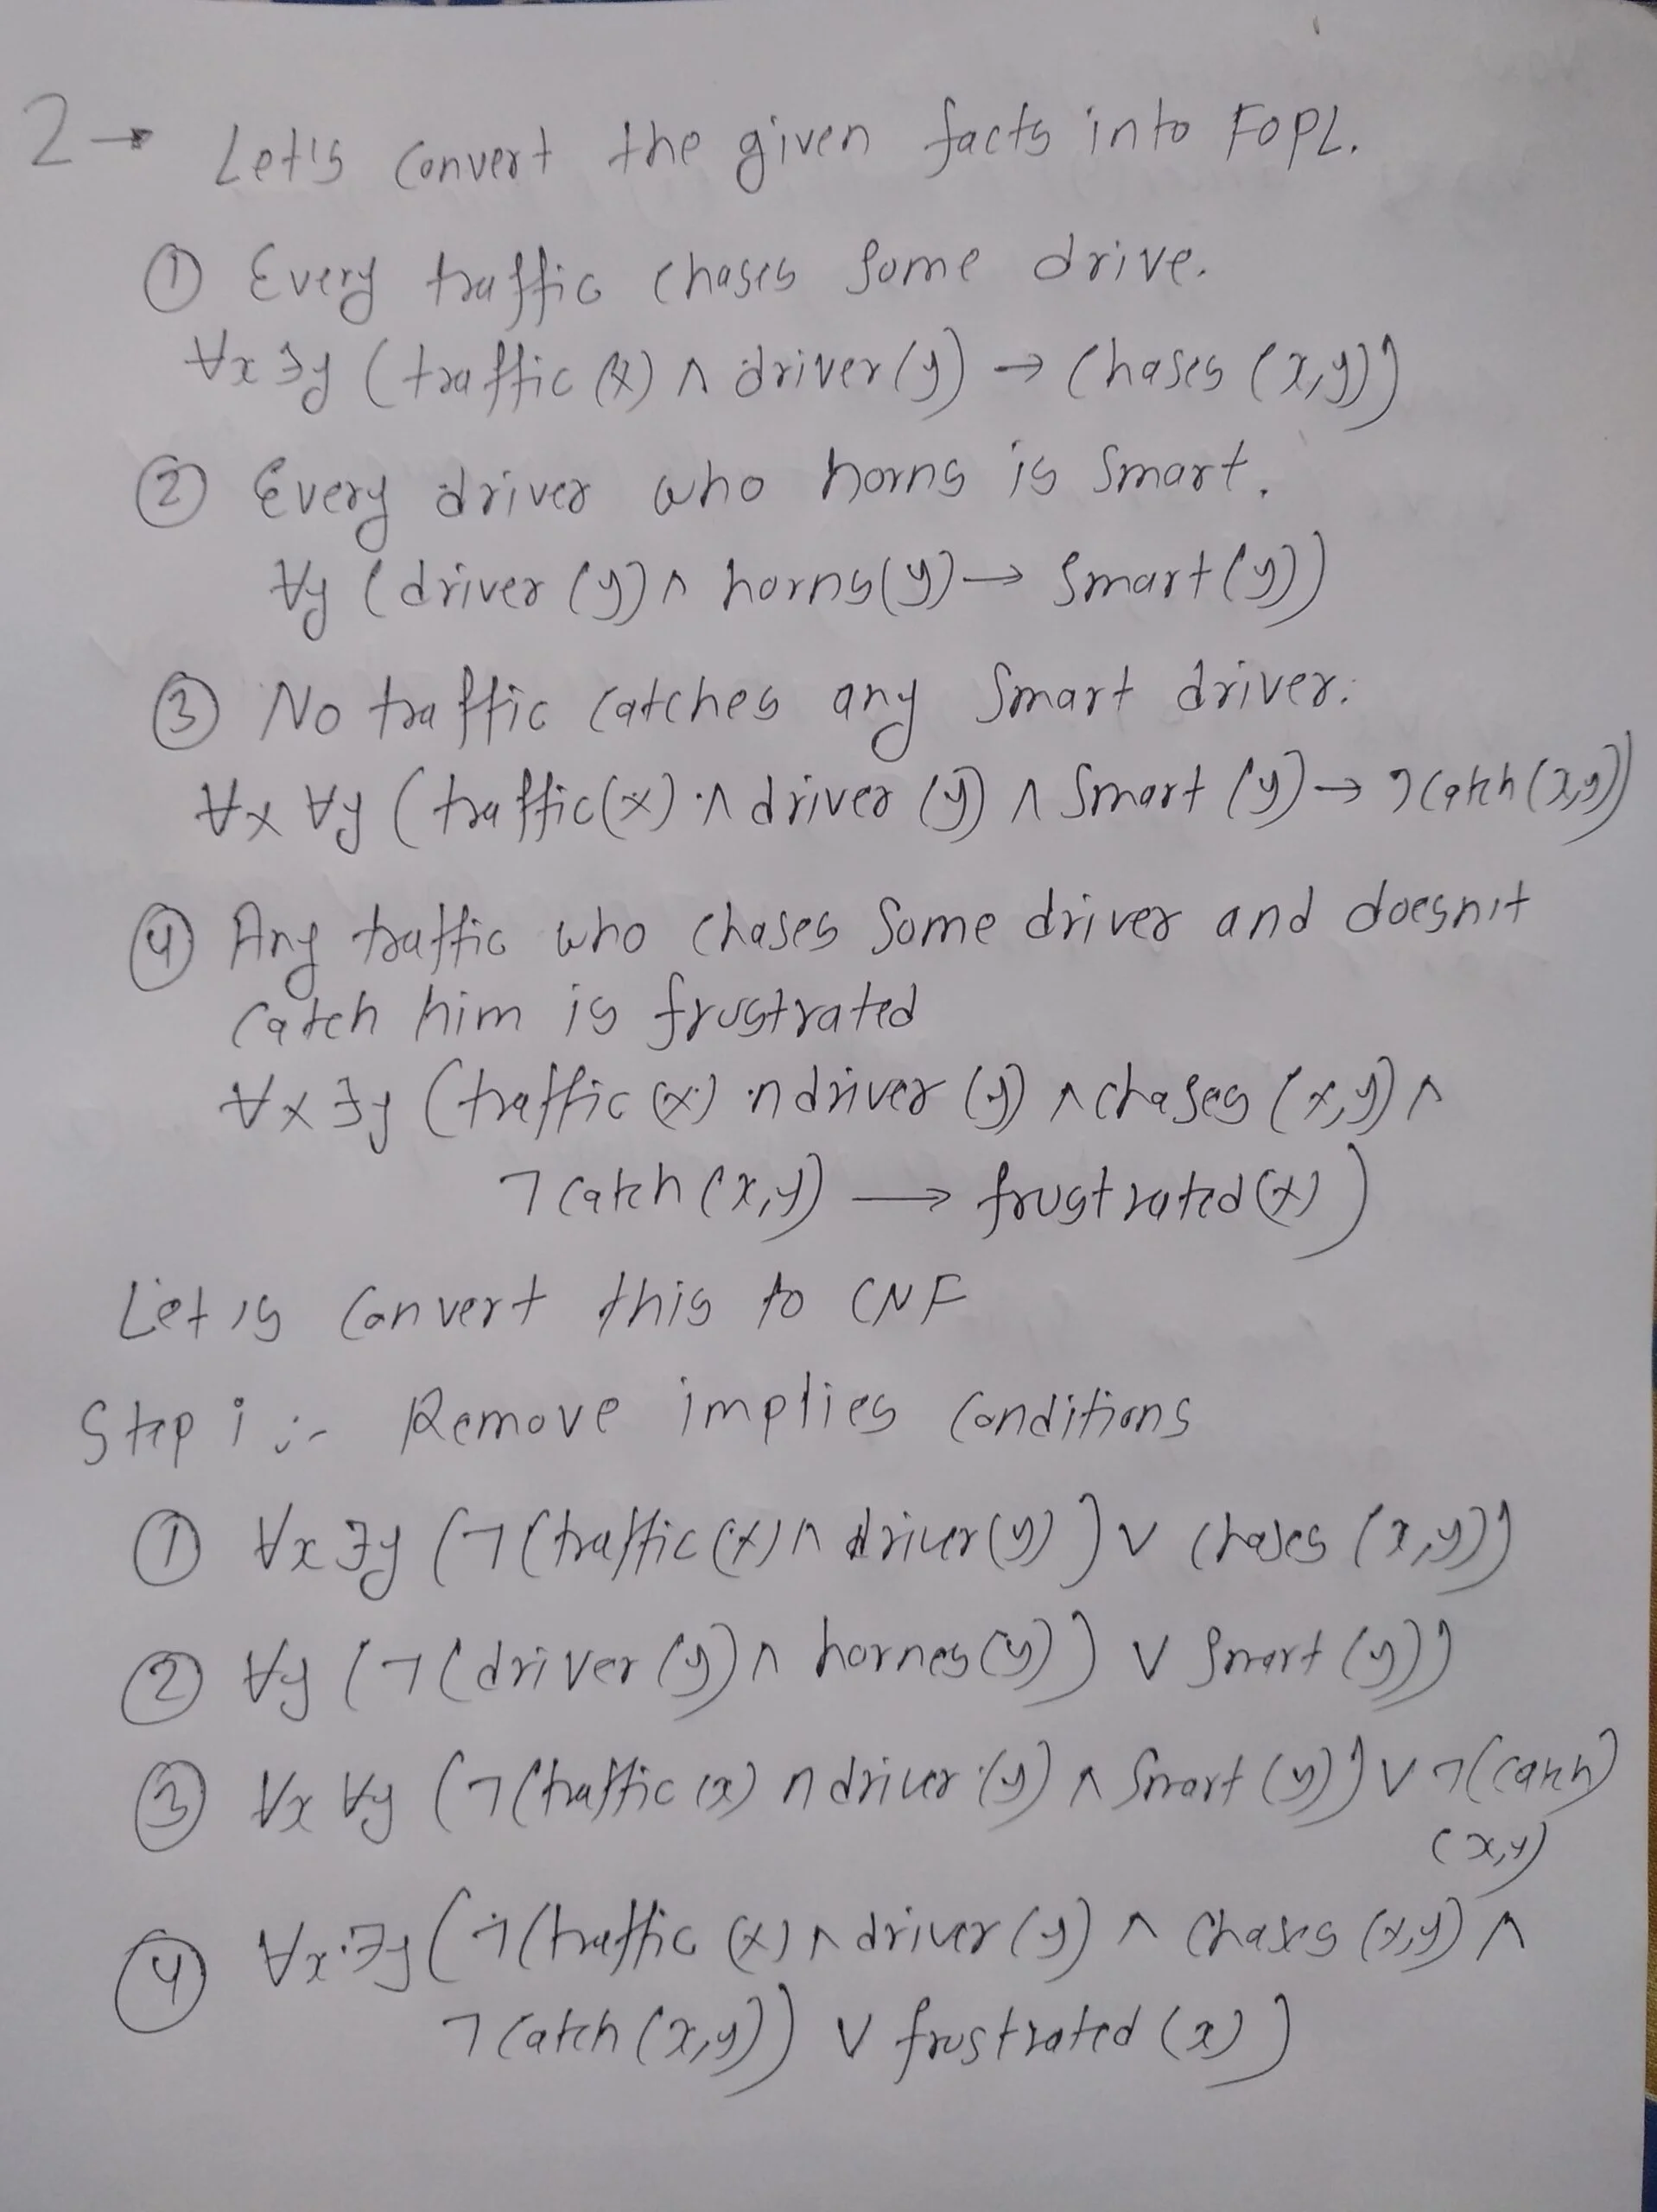 2→ Let's convert the given facts into FOPL.
① Every traffic chases some drive.
∀x ∃y (traffic(x) ∧ driver(y) → chases (x,y))
② Every driver who horns is smart.
∀y (driver (y) ∧ horns(y) → smart(y))
③ No traffic catches any smart driver.
∀x ∀y (traffic(x) ∧ driver (y) ∧ smart (y) → ¬catch (x,y))
④ Any traffic who chases some driver and doesn't
catch him is frustrated
∀x ∃y (traffic (x) ∧ driver (y) ∧ chases (x,y) ∧
¬catch (x,y) → frustrated(x))
Let's convert this to CNF
Step i :- Remove implies conditions
① ∀x ∃y (¬(traffic(x) ∧ driver(y)) ∨ chases (x,y))
② ∀y (¬(driver (y) ∧ hornes(y)) ∨ smart (y))
③ ∀x ∀y (¬(traffic (x) ∧ driver (y) ∧ smart (y)) ∨ ¬(catch)
(x,y)
④ ∀x ∃y (¬(traffic (x) ∧ driver (y) ∧ chases (x,y) ∧
¬catch (x,y)) ∨ frustrated (x))